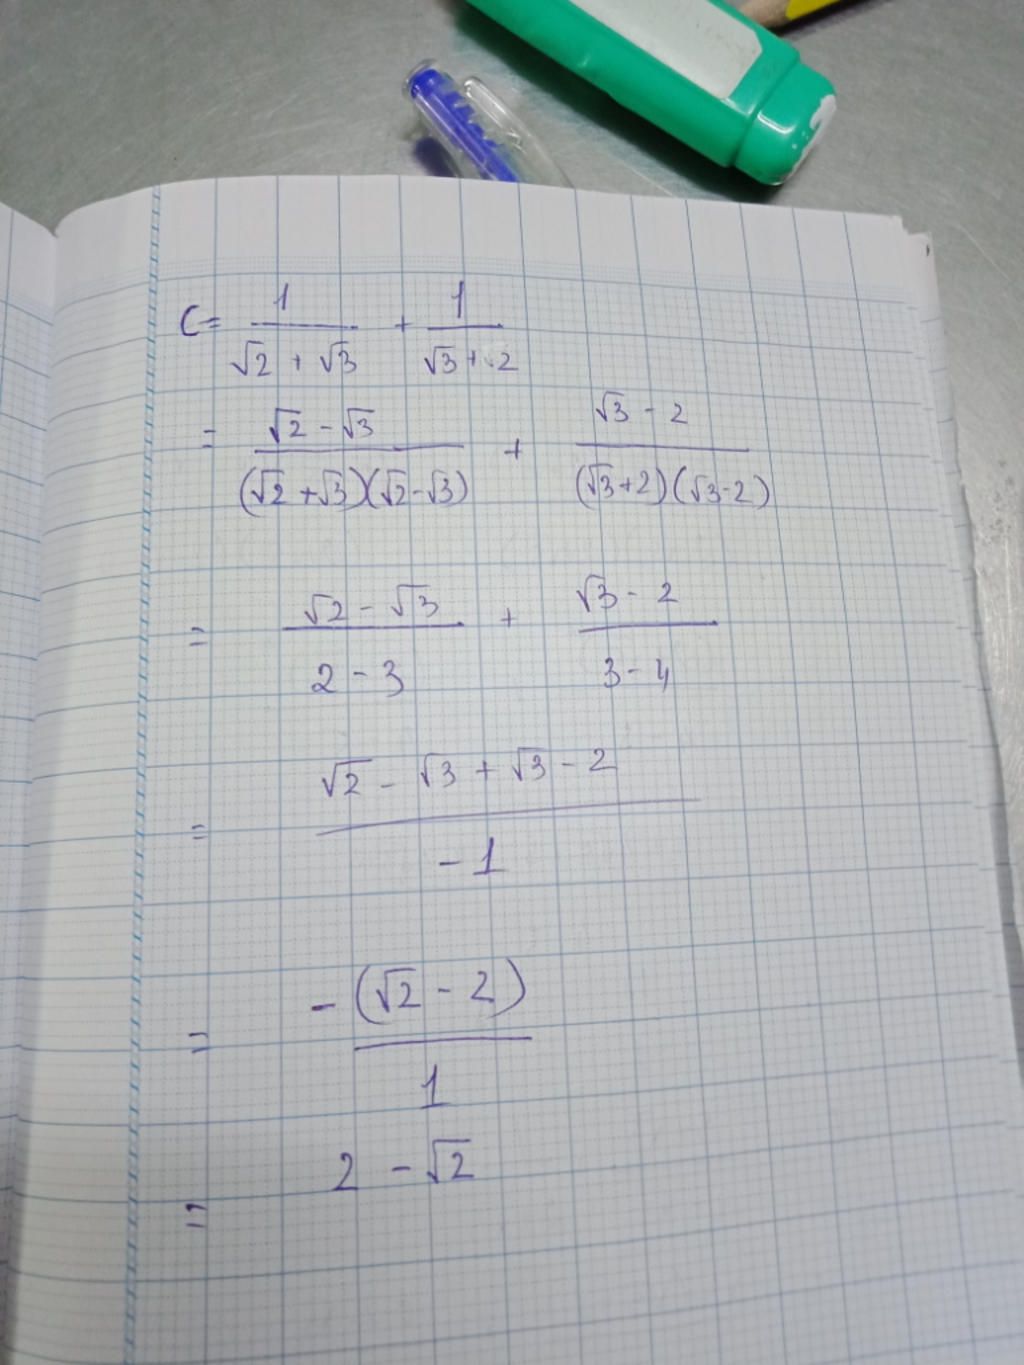 C = 1/(√2 + √3) + 1/(√3 + 2)
= (√2 - √3)/((√2 + √3)(√2 - √3)) + (√3 - 2)/((√3 + 2)(√3 - 2))
= (√2 - √3)/(2 - 3) + (√3 - 2)/(3 - 4)
= (√2 - √3 + √3 - 2)/(-1)
= -(√2 - 2)/1
= 2 - √2